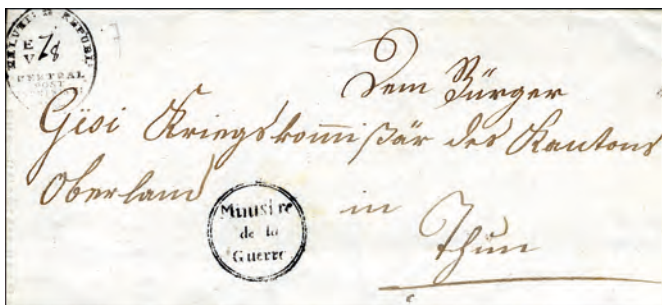 HELVET: REPUBL:
E 78
V
CENTRAL
POST
Dem Bürger
Gisi Kriegskommißär des Kantons
Oberland
in
Thun
Ministre
de la
Guerre